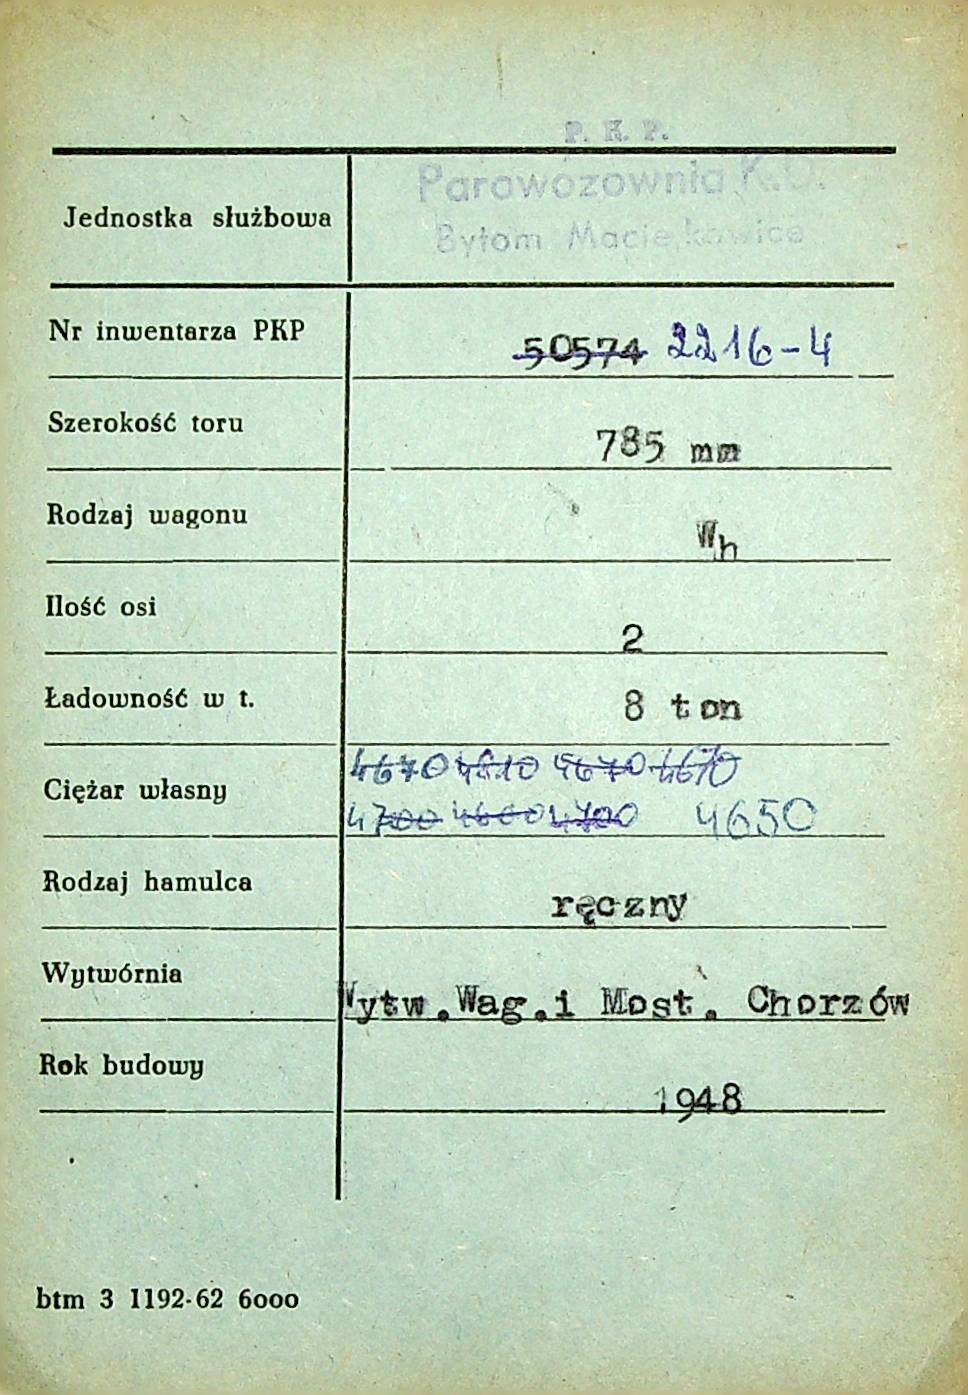 P. K. P.
Parowozownia K.D.
Jednostka służbowa
Bytom Maciejkowice
Nr inwentarza PKP 50574 2216-4
Szerokość toru 785 mm
Rodzaj wagonu Wh
Ilość osi 2
Ładowność w t. 8 ton
4670 4810 4670 4670
Ciężar własny
4700 4600 4700 4650
Rodzaj hamulca ręczny
Wytwórnia Wytw.Wag.i Most. Chorzów
Rok budowy 1948
btm 3 1192-62 6000